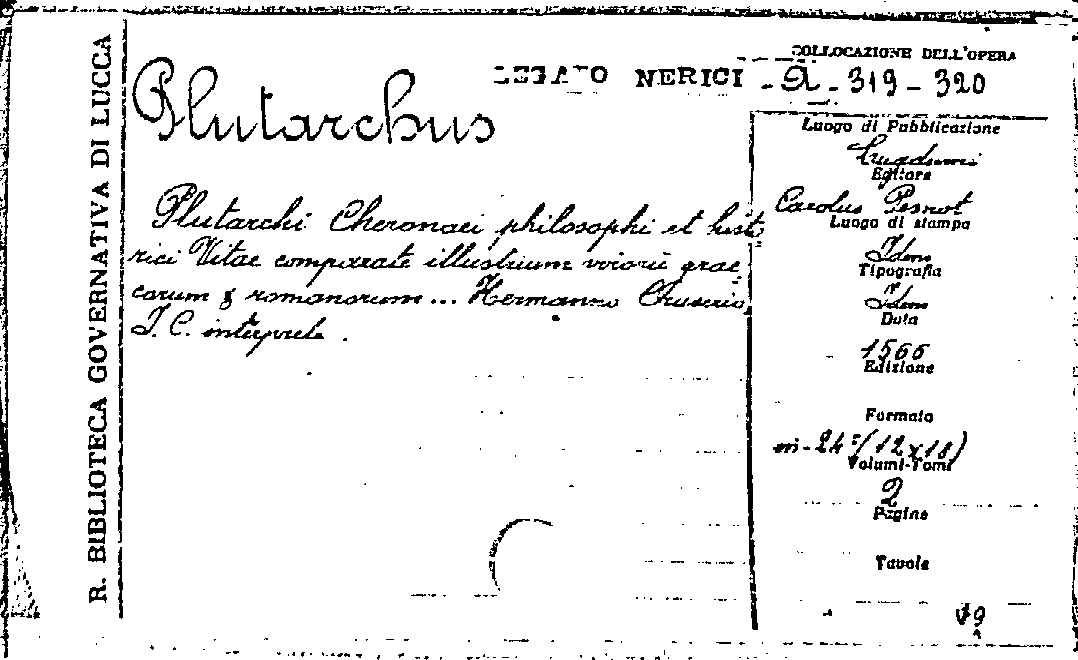 R. BIBLIOTECA GOVERNATIVA DI LUCCA
COLLOCAZIONE DELL'OPERA
LEGATO NERICI - A - 319 - 320
Plutarchus
Plutarchi Cheronaei philosophi et histo
rici Vitae comparate illustrium virorū grae
corum & romanorum ... Hermanno Cruserio,
J. C. interprete.
Luogo di Pubblicazione
Lugduni
Editore
Carolus Pesnot
Luogo di stampa
Idem
Tipografia
Idem
Data
1566
Edizione
Formato
in-24° (12x18)
Volumi-Tomi
2
Pagine
Tavole